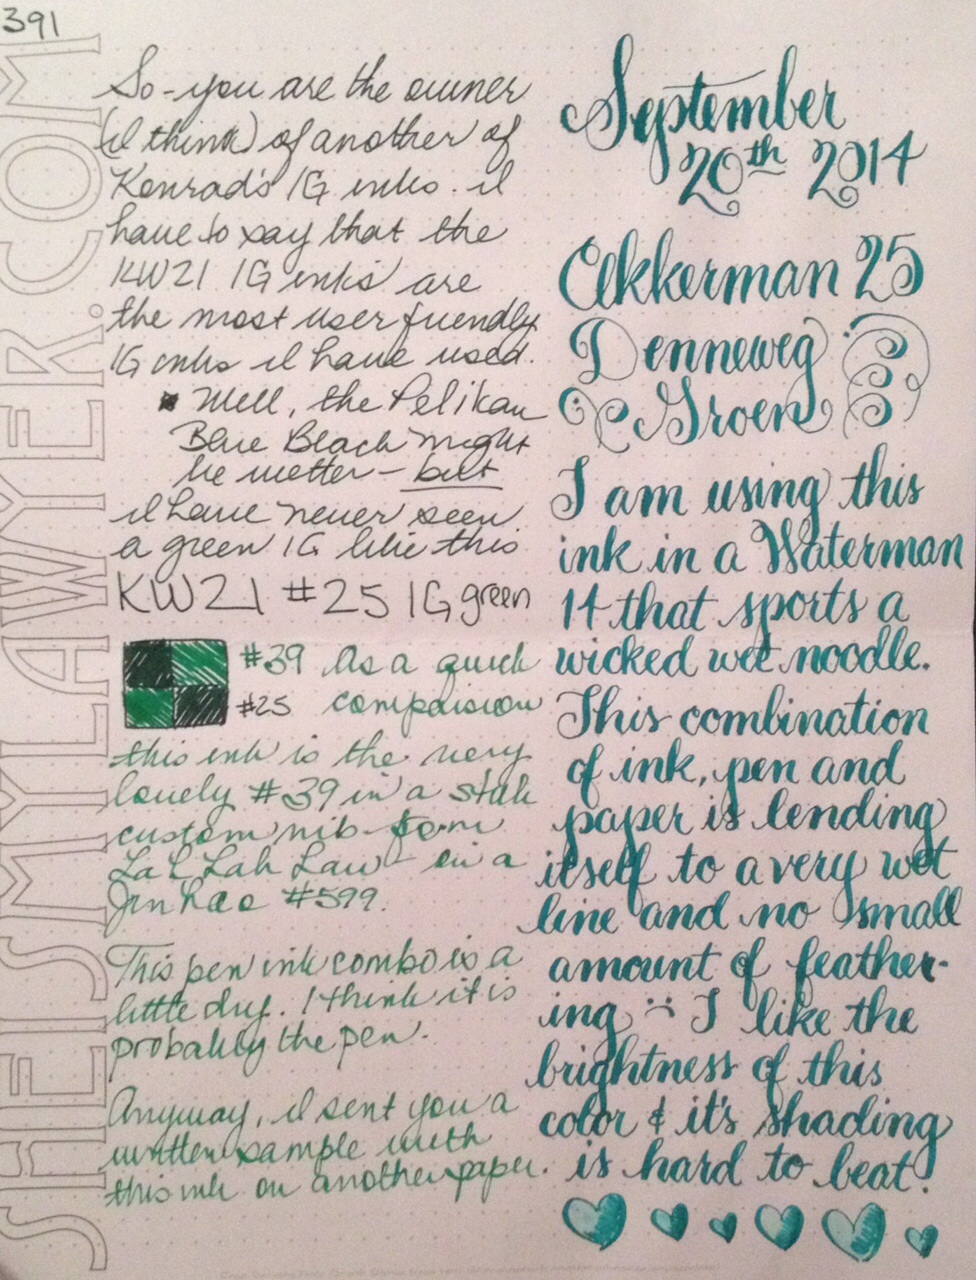 391
SHEISMYLAWYER.COM
So-you are the owner
(I think) of another of
Konrad's IG inks. I
have to say that the
KWZI IG inks are
the most user friendly
IG inks I have used.
Well, the Pelikan
Blue Black might
be wetter – but
I have never seen
a green IG like this
KWZI #25 IG green
#39 As a quick
#25 comparison
this ink is the very
lovely #39 in a stub
custom nib from
La L Lah Law – in a
Jinhao #599.
This pen ink combo is a
little dry. I think it is
probably the pen.
Anyway, I sent you a
written sample with
this ink on another paper.
September
20th 2014
Akkerman 25
Denneweg
Groen
I am using this
ink in a Waterman
14 that sports a
wicked wet noodle.
This combination
of ink, pen and
paper is lending
itself to a very wet
line and no small
amount of feather-
ing :( I like the
brightness of this
color & it's shading
is hard to beat!